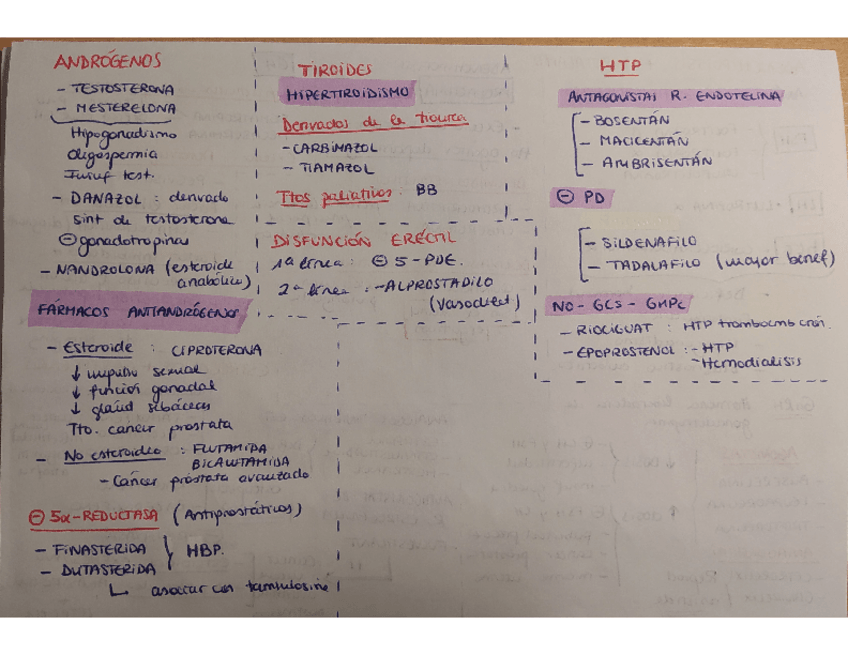 ANDRÓGENOS
- TESTOSTERONA
- MESTERELONA
Hipogonadismo
Oligospermia
Insuf test.
- DANAZOL : derivado
sint de testosterona
⊖ gonadotropinas
- NANDROLONA (esteroide
anabólico)
FÁRMACOS ANTIANDRÓGENOS
- Esteroide : CIPROTERONA
↓ impulso sexual
↓ función gonadal
↓ gland sebáceas
Tto. cancer prostata
- No esteroideo : FLUTAMIDA
BICALUTAMIDA
- Cáncer próstata avanzado
⊖ 5α-REDUCTASA (Antiprostáticos)
- FINASTERIDA } HBP.
- DUTASTERIDA
↳ asociar con tamsulosina
TIROIDES
HIPERTIROIDISMO
Derivados de la tiourea
- CARBIMAZOL
- TIAMAZOL
Ttos paliativos : BB
DISFUNCIÓN ERÉCTIL
1ª línea : ⊖ 5-PDE.
2ª línea : - ALPROSTADILO
(Vasodilat)
HTP
ANTAGONISTAS R. ENDOTELINA
- BOSENTÁN
- MACICENTÁN
- AMBRISENTÁN
⊖ PD
- SILDENAFILO
- TADALAFILO (mayor benef)
NO - GCS - GMPC
- RIOCIGUAT : HTP tromboemb crón.
- EPOPROSTENOL : - HTP
- Hemodialisis